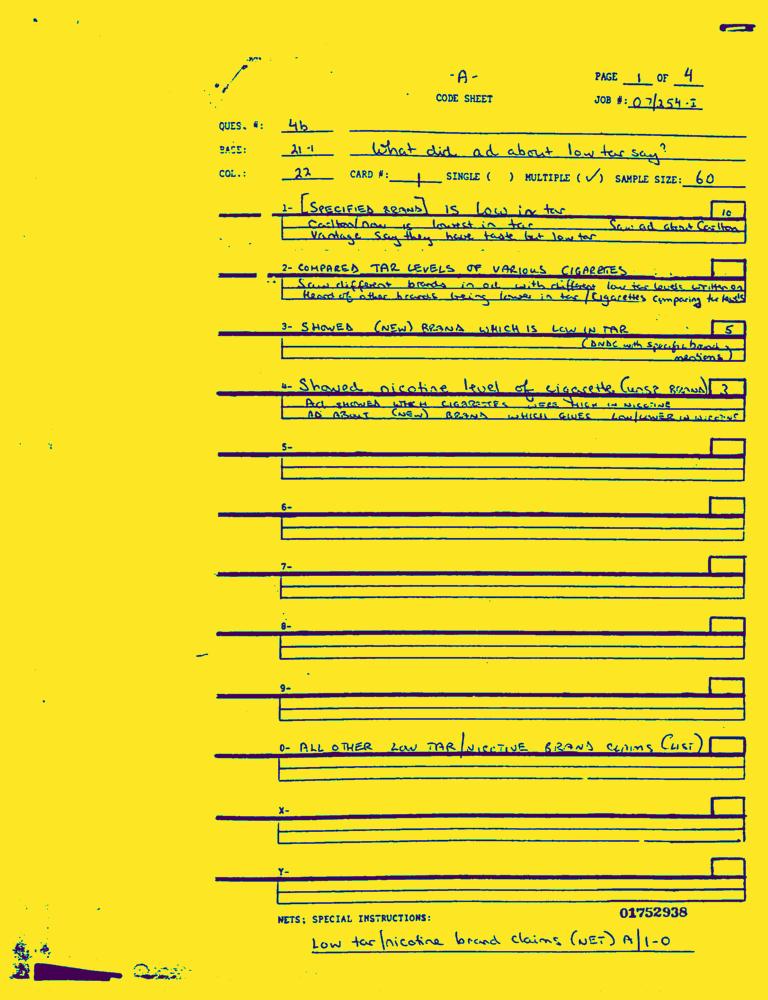 -A-
PAGE 1 OF 4
CODE SHEET
JOB #: 07/254-I
QUES. #: 4b
BASE: 21-1 What did ad about low tar say?
COL.: 22 CARD #: 1 SINGLE ( ) MULTIPLE (✓) SAMPLE SIZE: 60
1- [SPECIFIED BRAND] IS Low in tar 10
Carlton/now is lowest in tar Saw ad about Carlton
Vantage say they have taste but low tar
2- COMPARED TAR LEVELS OF VARIOUS CIGARETES
Saw different brands in ad with different low tar levels written on
Heard of other brands being lower in tar/Cigarettes comparing tar levels
3- SHOWED (NEW) BRAND WHICH IS LOW IN TAR 5
(DNDC with specific brand
mentions)
4- Showed nicotine level of cigarette (unsp BRAND) 2
AD SHOWED WHICH CIGARETTES WERE HIGH IN NICOTINE
AD ABOUT (NEW) BRAND WHICH GIVES LOW/LOWER IN NICOTINE
5-
6-
7-
8-
9-
0- ALL OTHER LOW TAR/NICOTINE BRAND CLAIMS (LIST)
X-
Y-
NETS; SPECIAL INSTRUCTIONS:
01752938
Low tar/nicotine brand claims (NET) A/1-0